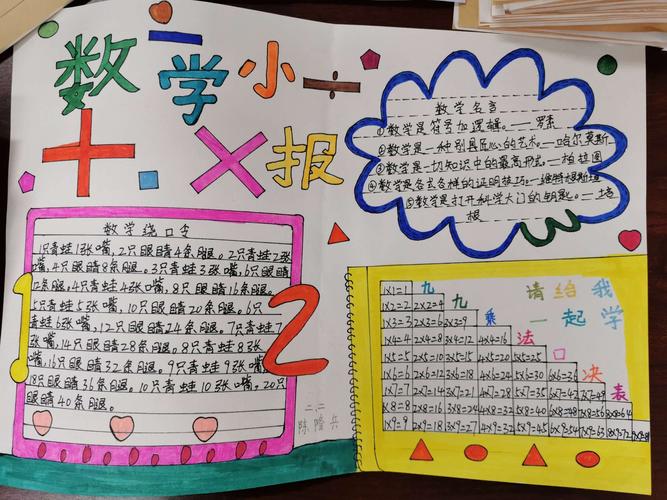 数学小报
数学绕口令
1只青蛙1张嘴,2只眼睛4条腿。2只青蛙2张
嘴,4只眼睛8条腿。3只青蛙3张嘴,6只眼睛
12条腿。4只青蛙4张嘴,8只眼睛16条腿。
5只青蛙5张嘴,10只眼睛20条腿。6只
青蛙6张嘴,12只眼睛24条腿。7只青蛙7
张嘴,14只眼睛28条腿。8只青蛙8张
嘴,16只眼睛32条腿。9只青蛙9张嘴,
18只眼睛36条腿。10只青蛙10张嘴,20只
眼睛40条腿。
1
2
二、二
陈隆兵
数学名言
①数学是符号加逻辑。——罗素
②数学是一种别具匠心的艺术。——哈尔莫斯
③数学是一切知识中的最高形式。——柏拉图
④数学是各式各样的证明技巧。——维特根斯坦
⑤数学是打开科学大门的钥匙。——培
根
请给我
一起学
九九乘法口决表
1×1=1
1×2=2 2×2=4
1×3=3 2×3=6 3×3=9
1×4=4 2×4=8 3×4=12 4×4=16
1×5=5 2×5=10 3×5=15 4×5=20 5×5=25
1×6=6 2×6=12 3×6=18 4×6=24 5×6=30 6×6=36
1×7=7 2×7=14 3×7=21 4×7=28 5×7=35 6×7=42 7×7=49
1×8=8 2×8=16 3×8=24 4×8=32 5×8=40 6×8=48 7×8=56 8×8=64
1×9=9 2×9=18 3×9=27 4×9=32 5×9=45 6×9=54 7×9=63 8×9=72 9×9=81